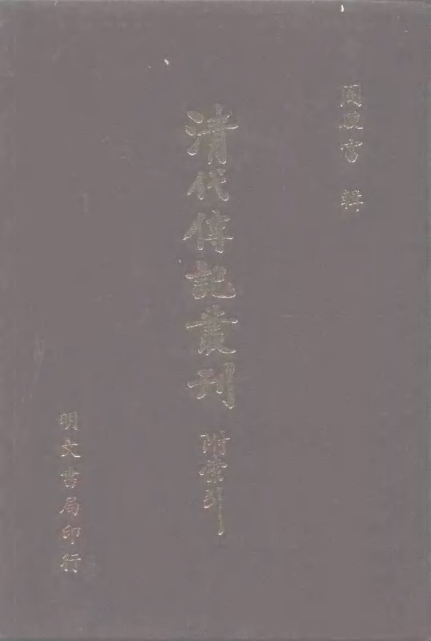 周駿富 輯
清代傳記叢刊 附索引
明文書局印行